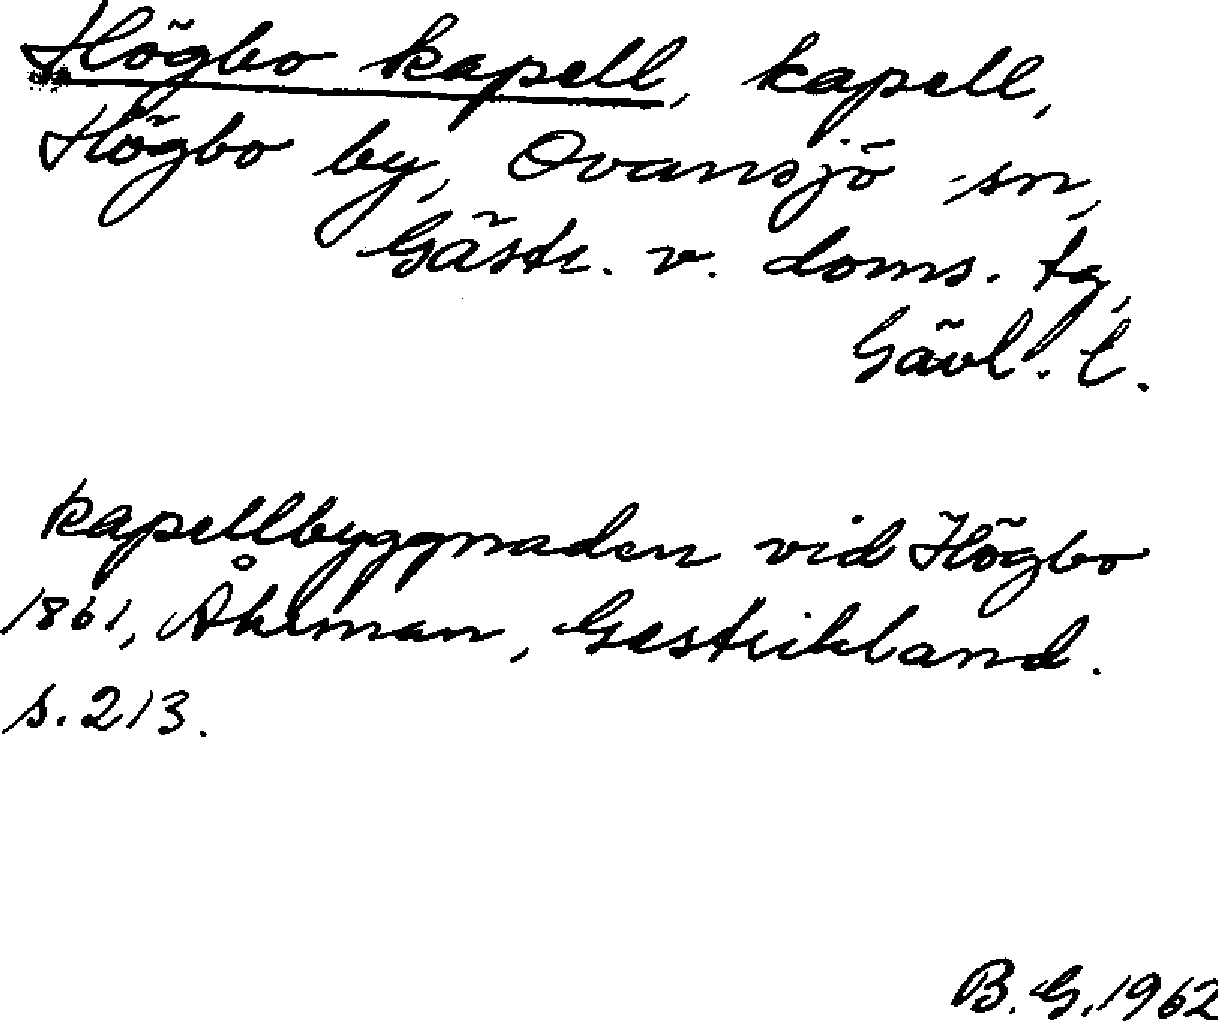 Högbo kapell, kapell,
Högbo by, Ovansjö sn,
Gästr. v. doms. tg,
Gävl. l.
kapellbyggnaden vid Högbo
1861, Åhrman, Gestrikland.
s. 213.
B. G. 1962